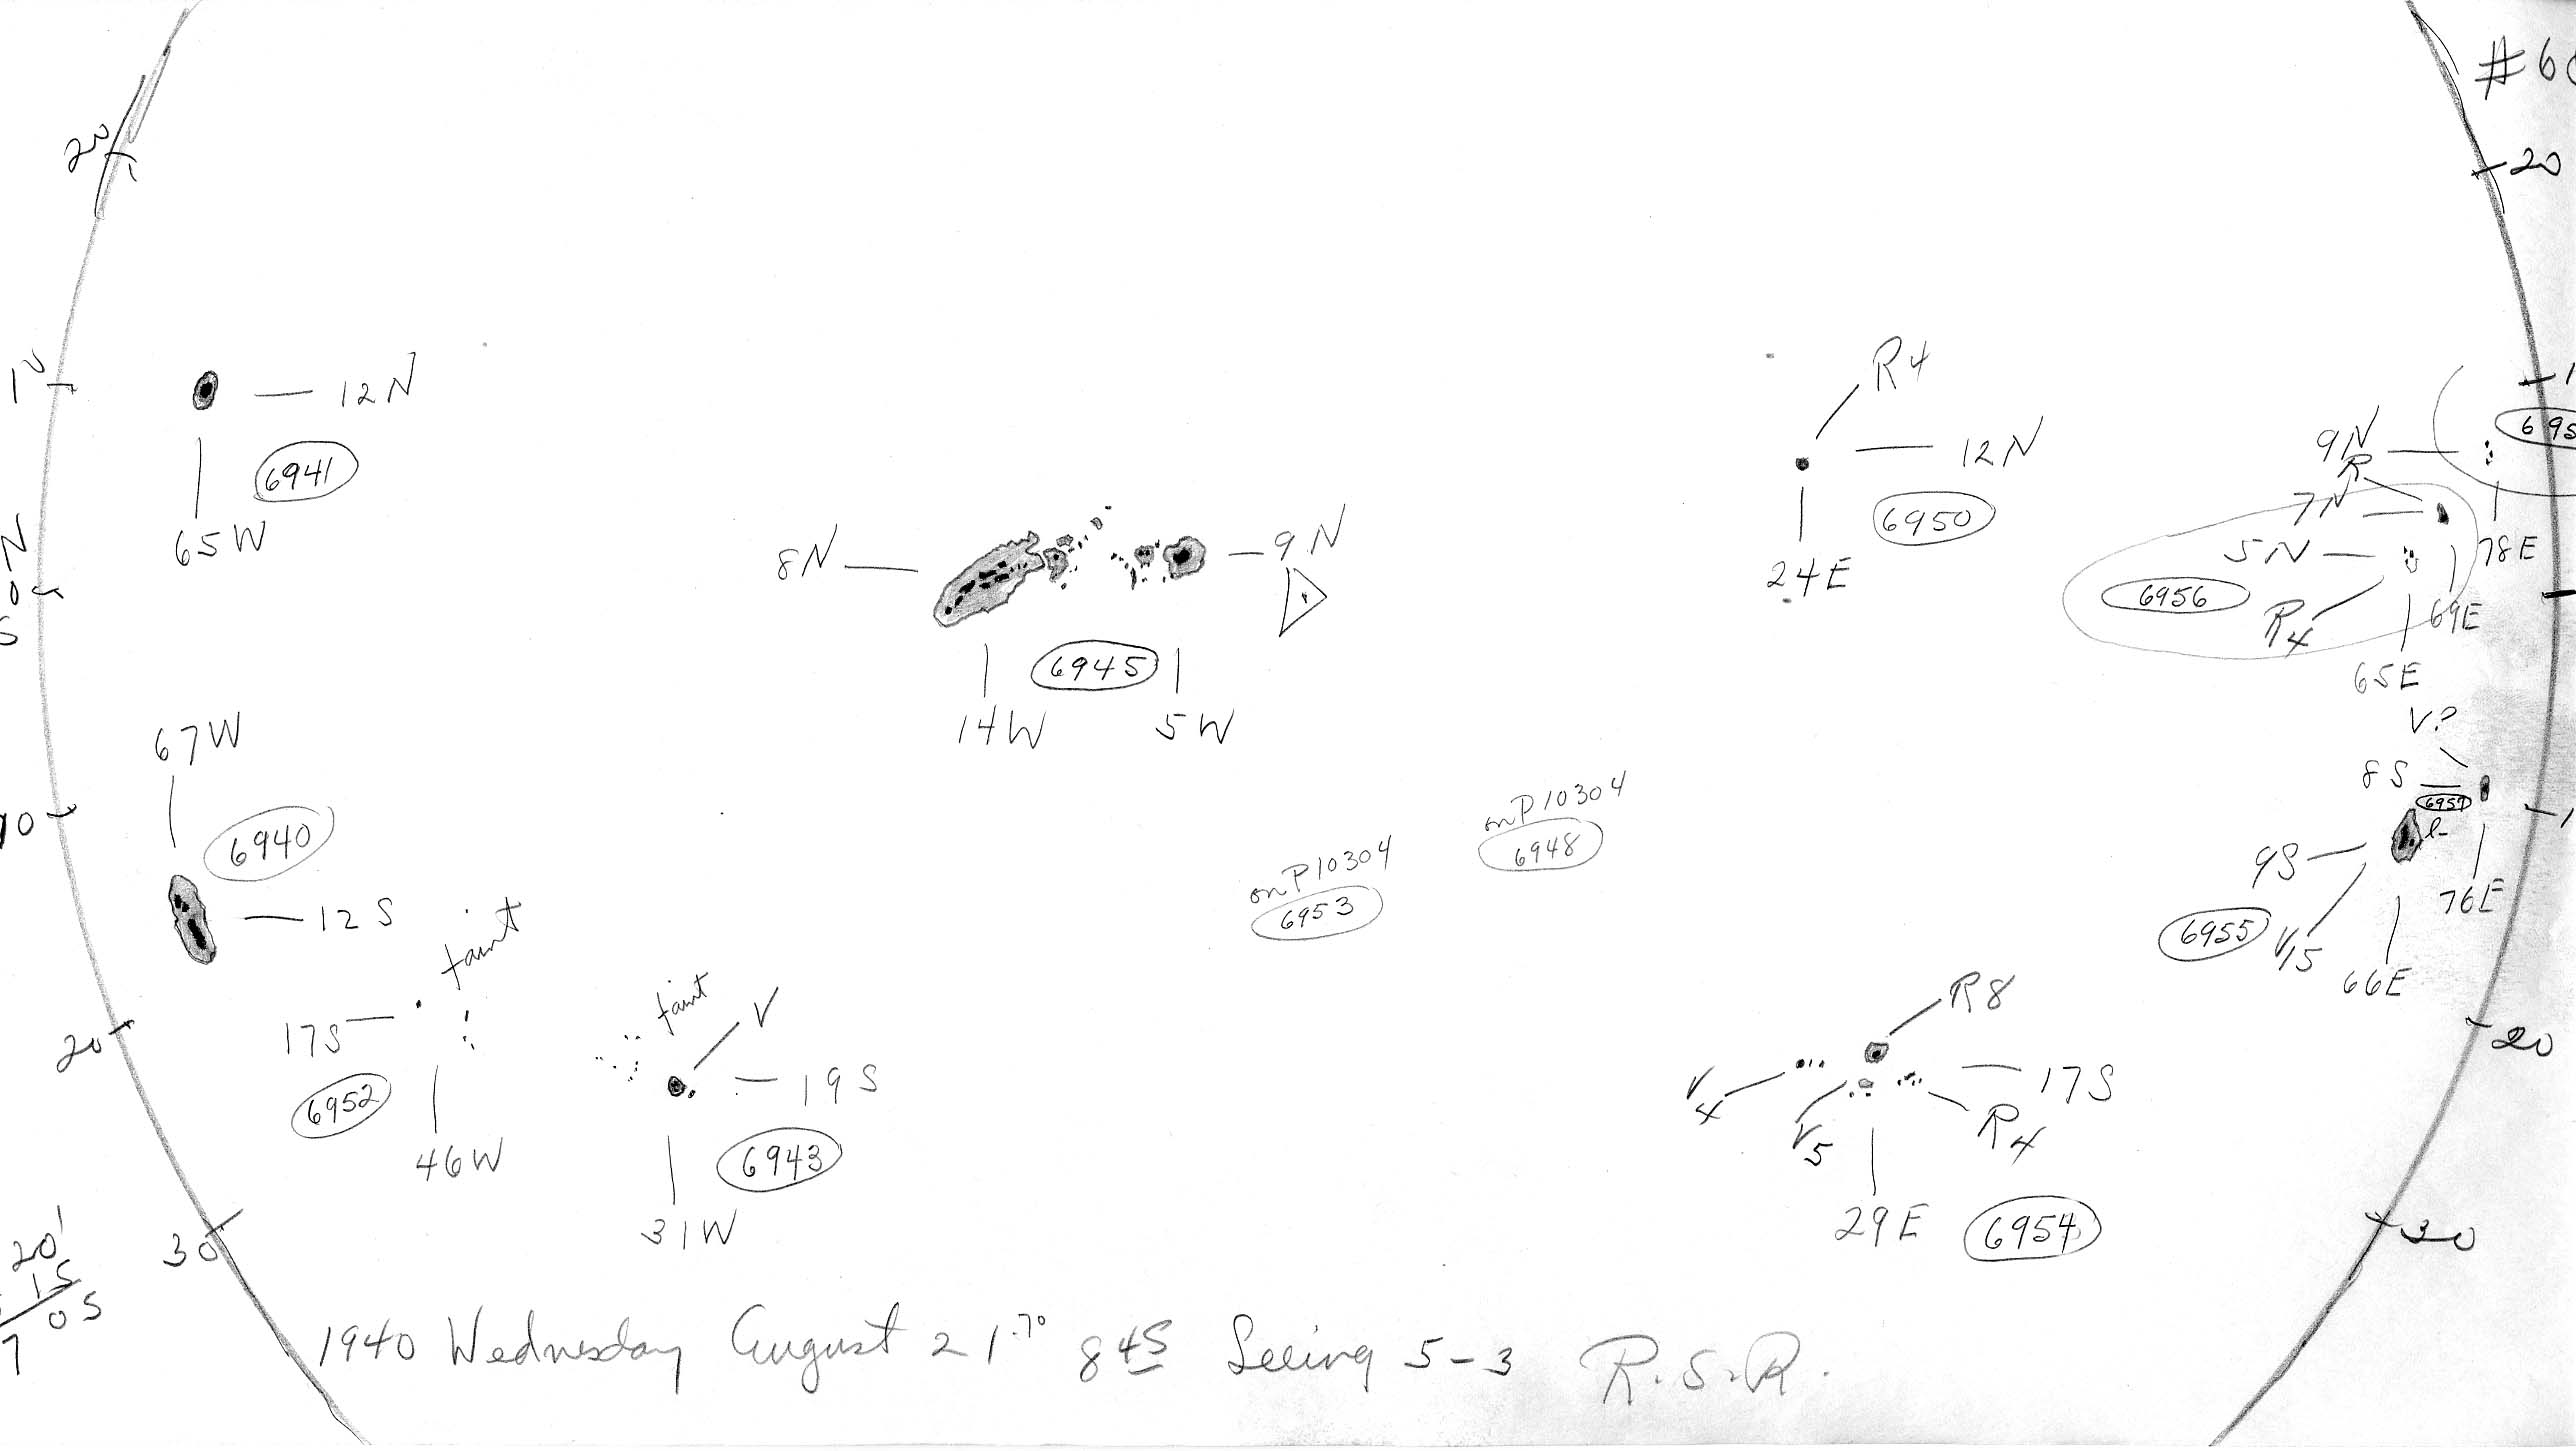 20
20
R4
12N
12N
6941
65W
10
9N
R
7N
5N
78E
6956
R4
69E
65E
12N
6950
24E
8N
9N
6945
14W
5W
N
0
S
67W
6940
12S
10
V?
8S
6957
l-
9S
76E
6955
V15
66E
on P10304
6948
on P10304
6953
faint
17S
6952
46W
20
faint
V
19S
6943
31W
R8
17S
V4
V5
R4
29E
6954
20
30
30
20'
15
7 05
1940 Wednesday August 21.70 845 Seeing 5-3 R.S.R.